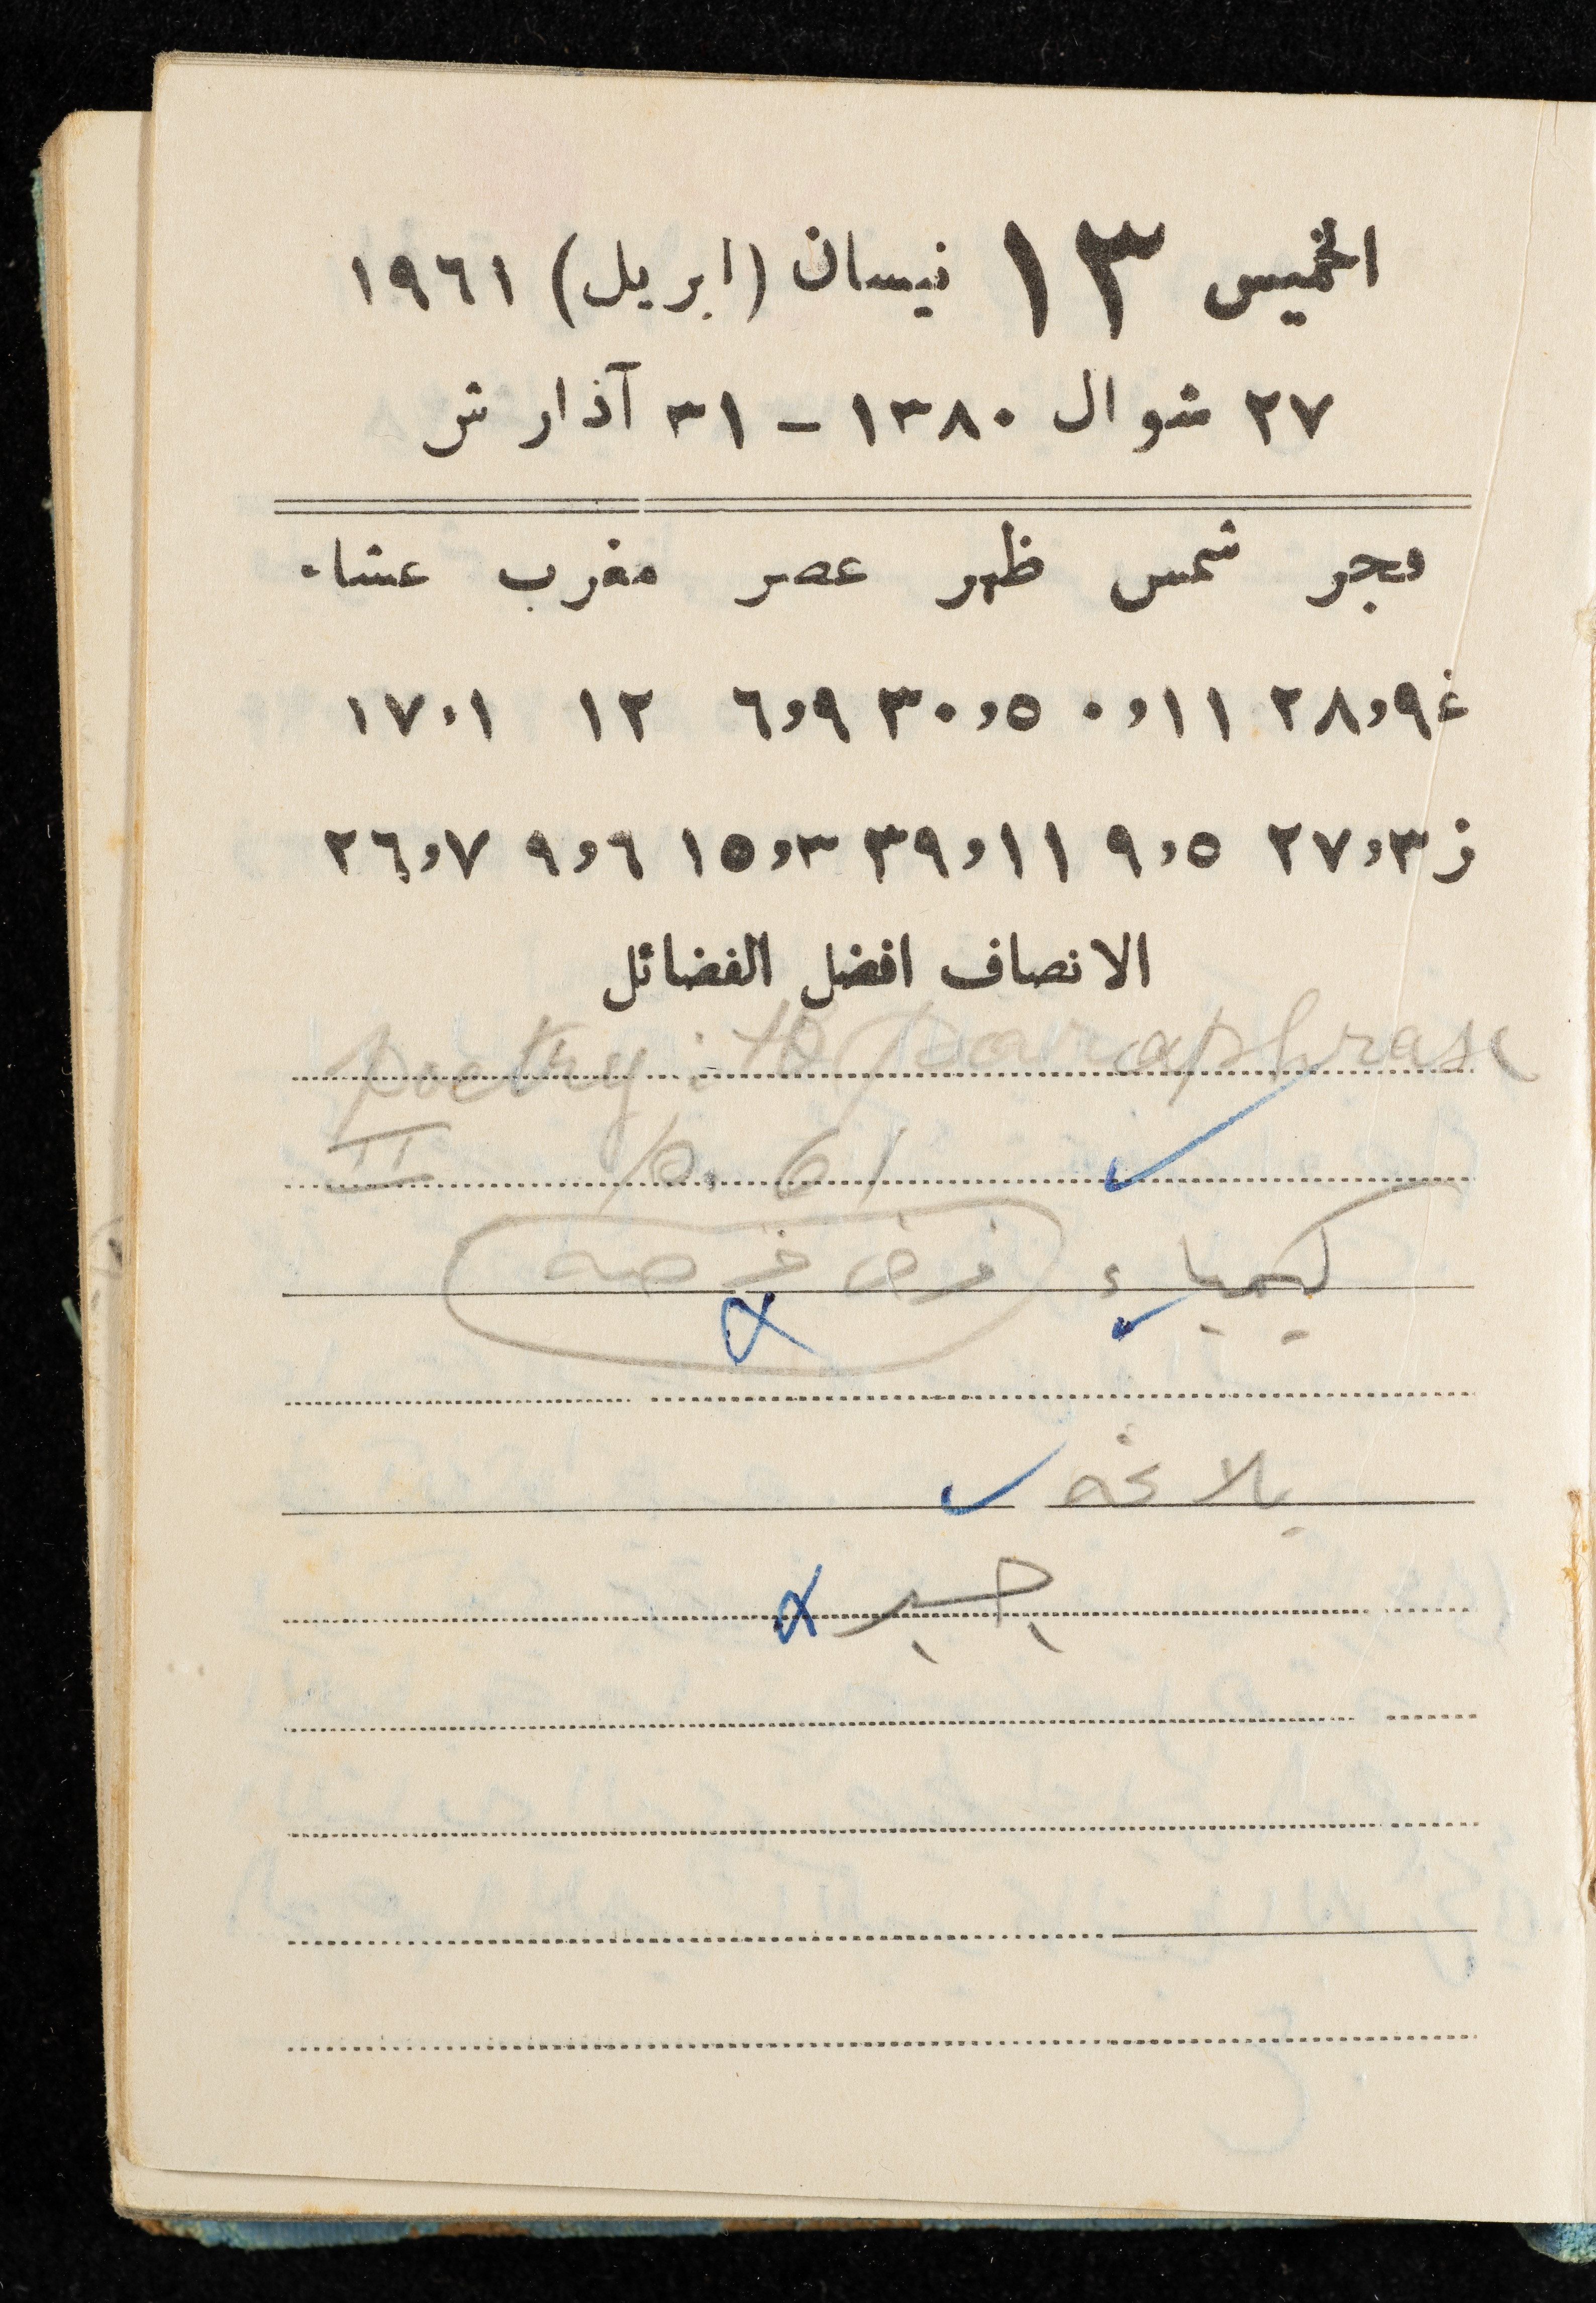 الخميس ١٣ نيسان (ابريل) ١٩٦١
٢٧ شوال ١٣٨٠ – ٣١ آذار ش
فجر شمس ظهر عصر مغرب عشاء
غ ٢٨,٩ ٠,١١ ٣٠,٥ ٦,٩ ١٢ ١٧,١
ز ٢٧,٣ ٩,٥ ٣٩,١١ ١٥,٣ ٩,٦ ٢٦,٧
الانصاف افضل الفضائل
poetry: to paraphrase
II p. 61
كيمياء فرض
بلاغه
جبر